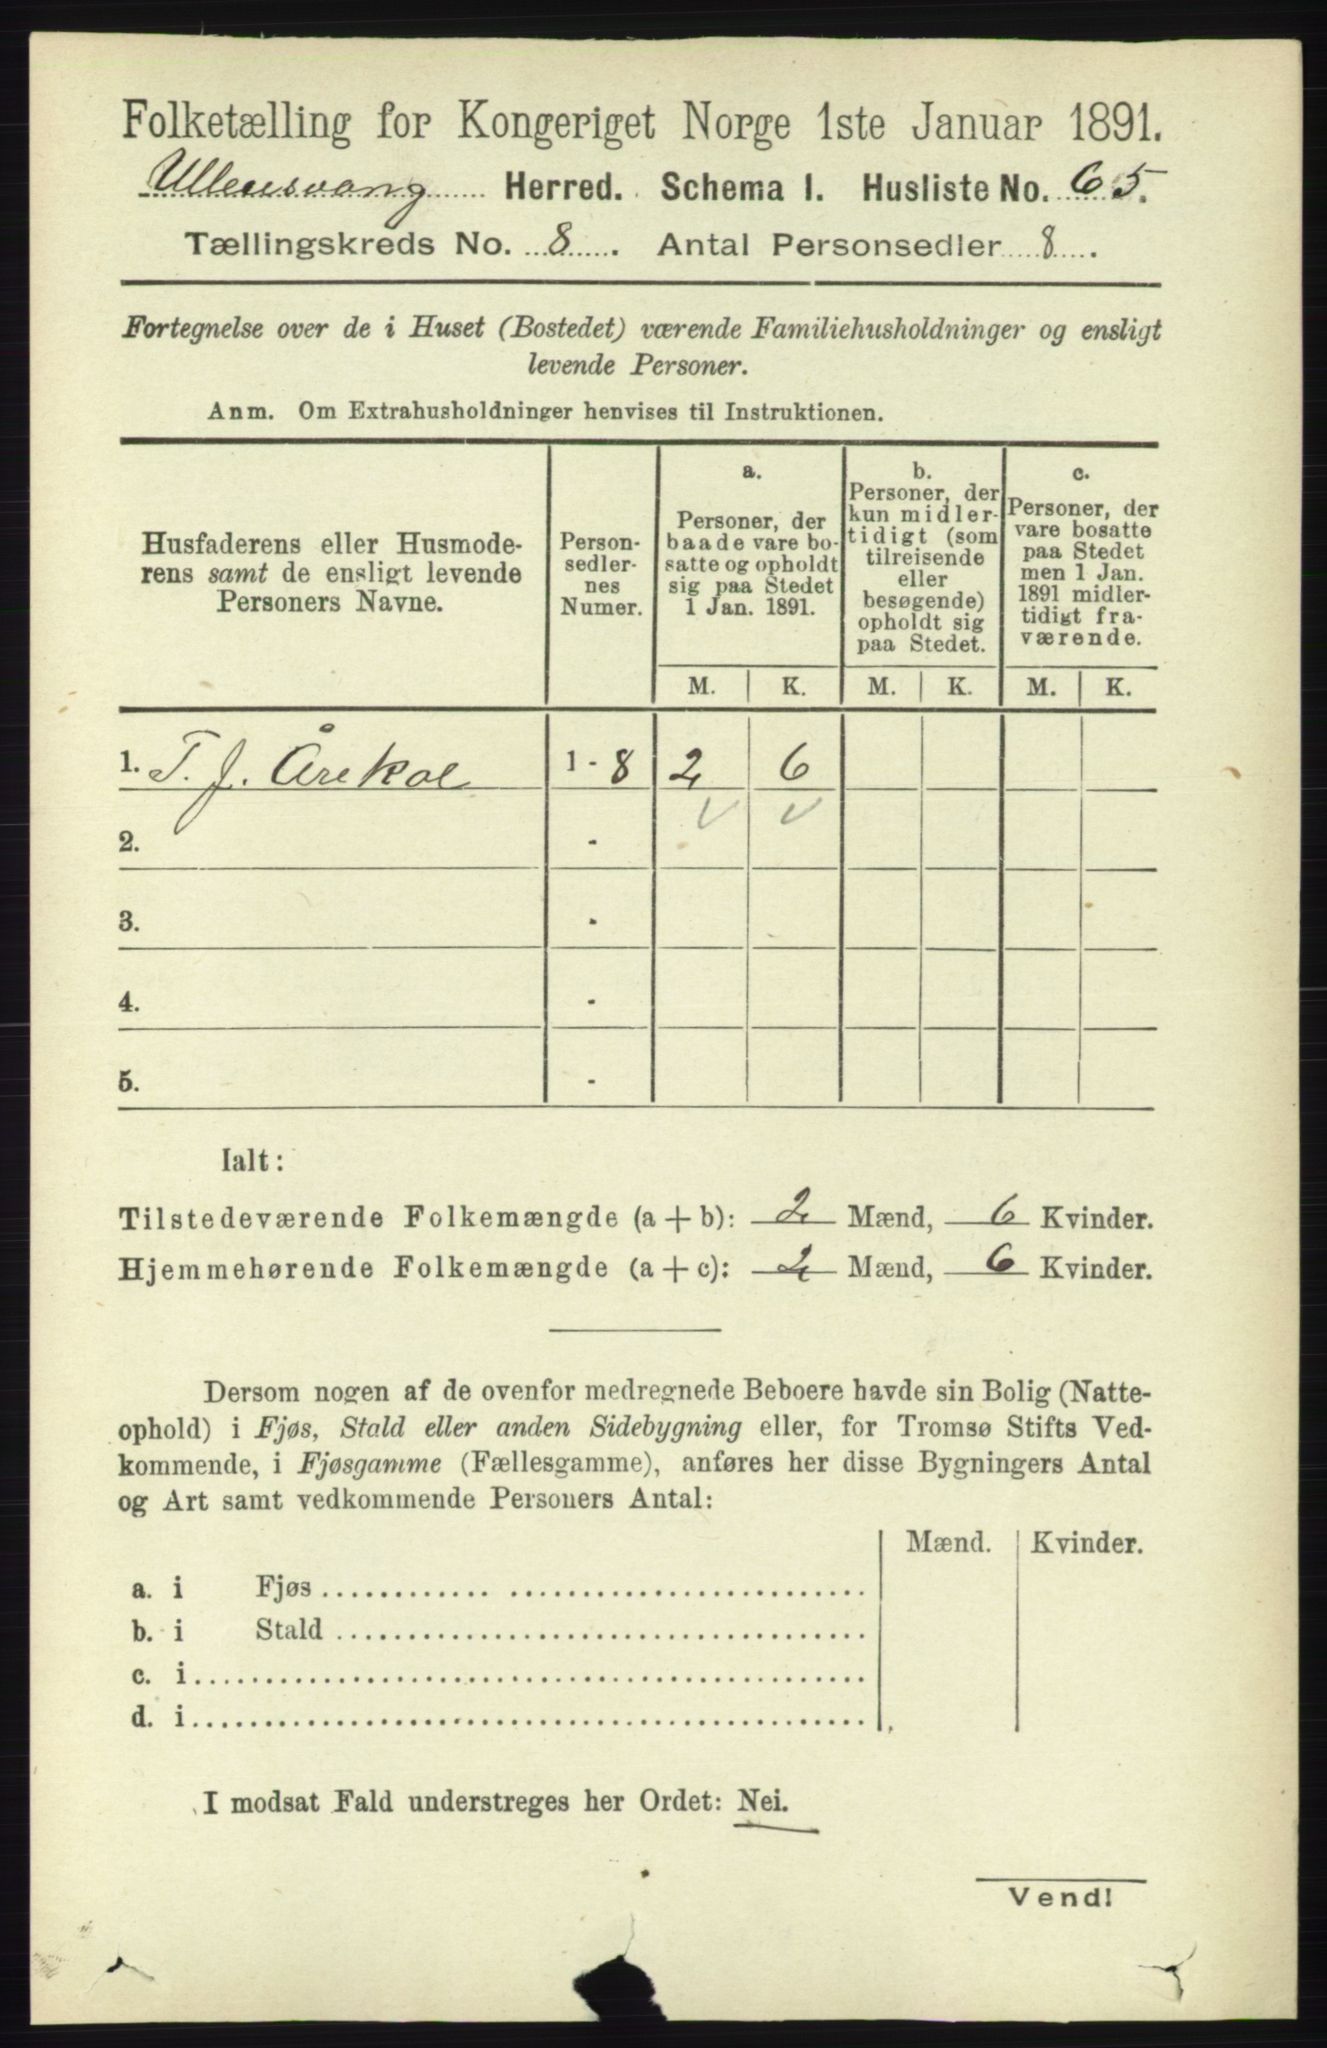 Folketælling for Kongeriget Norge 1ste Januar 1891.
Ullensvang Herred. Schema I. Husliste No. 65.
Tællingskreds No. 8. Antal Personsedler 8.
Fortegnelse over de i Huset (Bostedet) værende Familiehusholdninger og ensligt
levende Personer.
Anm. Om Extrahusholdninger henvises til Instruktionen.
Husfaderens eller Husmode-
rens samt de ensligt levende
Personers Navne.
Person-
sedler-
nes
Numer.
a.
Personer, der
baade vare bo-
satte og opholdt
sig paa Stedet
1 Jan. 1891.
b.
Personer, der
kun midler-
tidigt (som
tilreisende
eller
besøgende)
opholdt sig
paa Stedet.
c.
Personer, der
vare bosatte
paa Stedet
men 1 Jan.
1891 midler-
tidigt fra-
værende.
M. K. M. K. M. K.
1. T. J. 1 - 8 2 6
2. -
3. -
4. -
5. -
Ialt:
Tilstedeværende Folkemængde (a + b): 2 Mænd, 6 Kvinder.
Hjemmehørende Folkemængde (a + c): 2 Mænd, 6 Kvinder.
Dersom nogen af de ovenfor medregnede Beboere havde sin Bolig (Natte-
ophold) i Fjøs, Stald eller anden Sidebygning eller, for Tromsø Stifts Ved-
kommende, i Fjøsgamme (Fællesgamme), anføres her disse Bygningers Antal
og Art samt vedkommende Personers Antal:
Mænd. Kvinder.
a. i Fjøs
b. i Stald
c. i
d. i
I modsat Fald understreges her Ordet: Nei.
Vend!